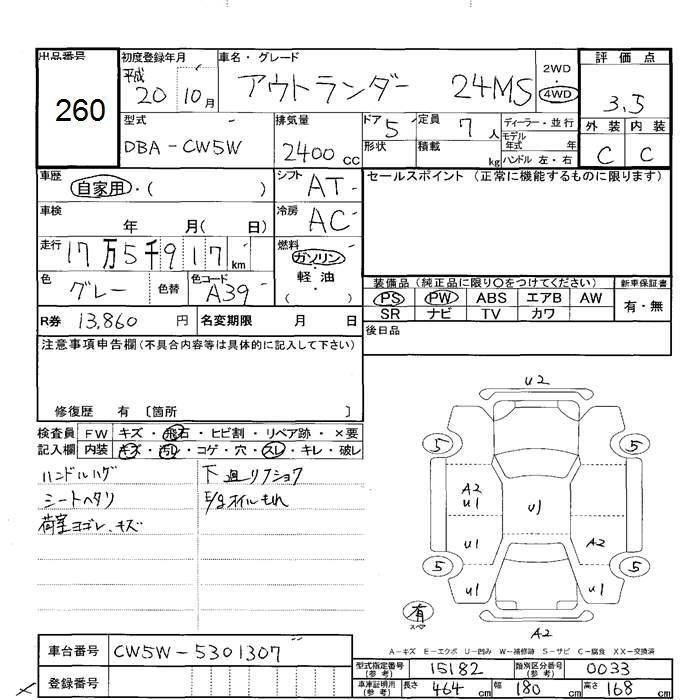 出品番号
260
初度登録年月
平成
20 10月
車名・グレード
アウトランダー 24MS
2WD
4WD
評価点
3.5
外装 内装
C C
型式
DBA-CW5W
排気量
2400cc
ドア 5
形状
定員 7人
積載 kg
ディーラー・並行
モデル
年式 年
ハンドル 左・右
車歴
自家用・( )
シフト AT
車検
年 月( 日)
冷房 AC
走行 17万5千917km
燃料
ガソリン・
軽油
( )
色 グレー 色替
色コード A39
R券 13,860円
名変期限 月 日
セールスポイント (正常に機能するものに限ります)
装備品(純正品に限り○をつけてください)
PS PW ABS エアB AW
SR ナビ TV カワ
新車保証書
有・無
後日品
注意事項申告欄(不具合内容等は具体的に記入して下さい)
修復歴 有 〔箇所 〕
検査員
記入欄
FW キズ・飛石・ヒビ割・リペア跡・×要
内装 キズ・汚レ・コゲ・穴・スレ・キレ・破レ
ハンドルハゲ
シートヘタリ
荷室ヨゴレ、キズ
下廻リフショク
E/gオイルもれ
U2
5
5
A2
U1
U1
U1
U1
A2
U1
5
5
有
スペア
A2
A-キズ E-エクボ U-凹み W-補修跡 S-サビ C-腐食 XX-交換済
車台番号 CW5W-5301307
登録番号
型式指定番号
(参考)
15182
類別区分番号
(参考)
0033
車庫証明用
(参考)
長さ 464cm
幅 180cm
高さ 168cm